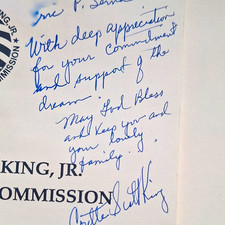 Eric P.
With deep appreciation
for your commitment
and support of the
dream.
May God Bless
and keep you and
your lovely
family.
KING, JR.
COMMISSION
KING, JR.
COMMISSION
Coretta Scott King